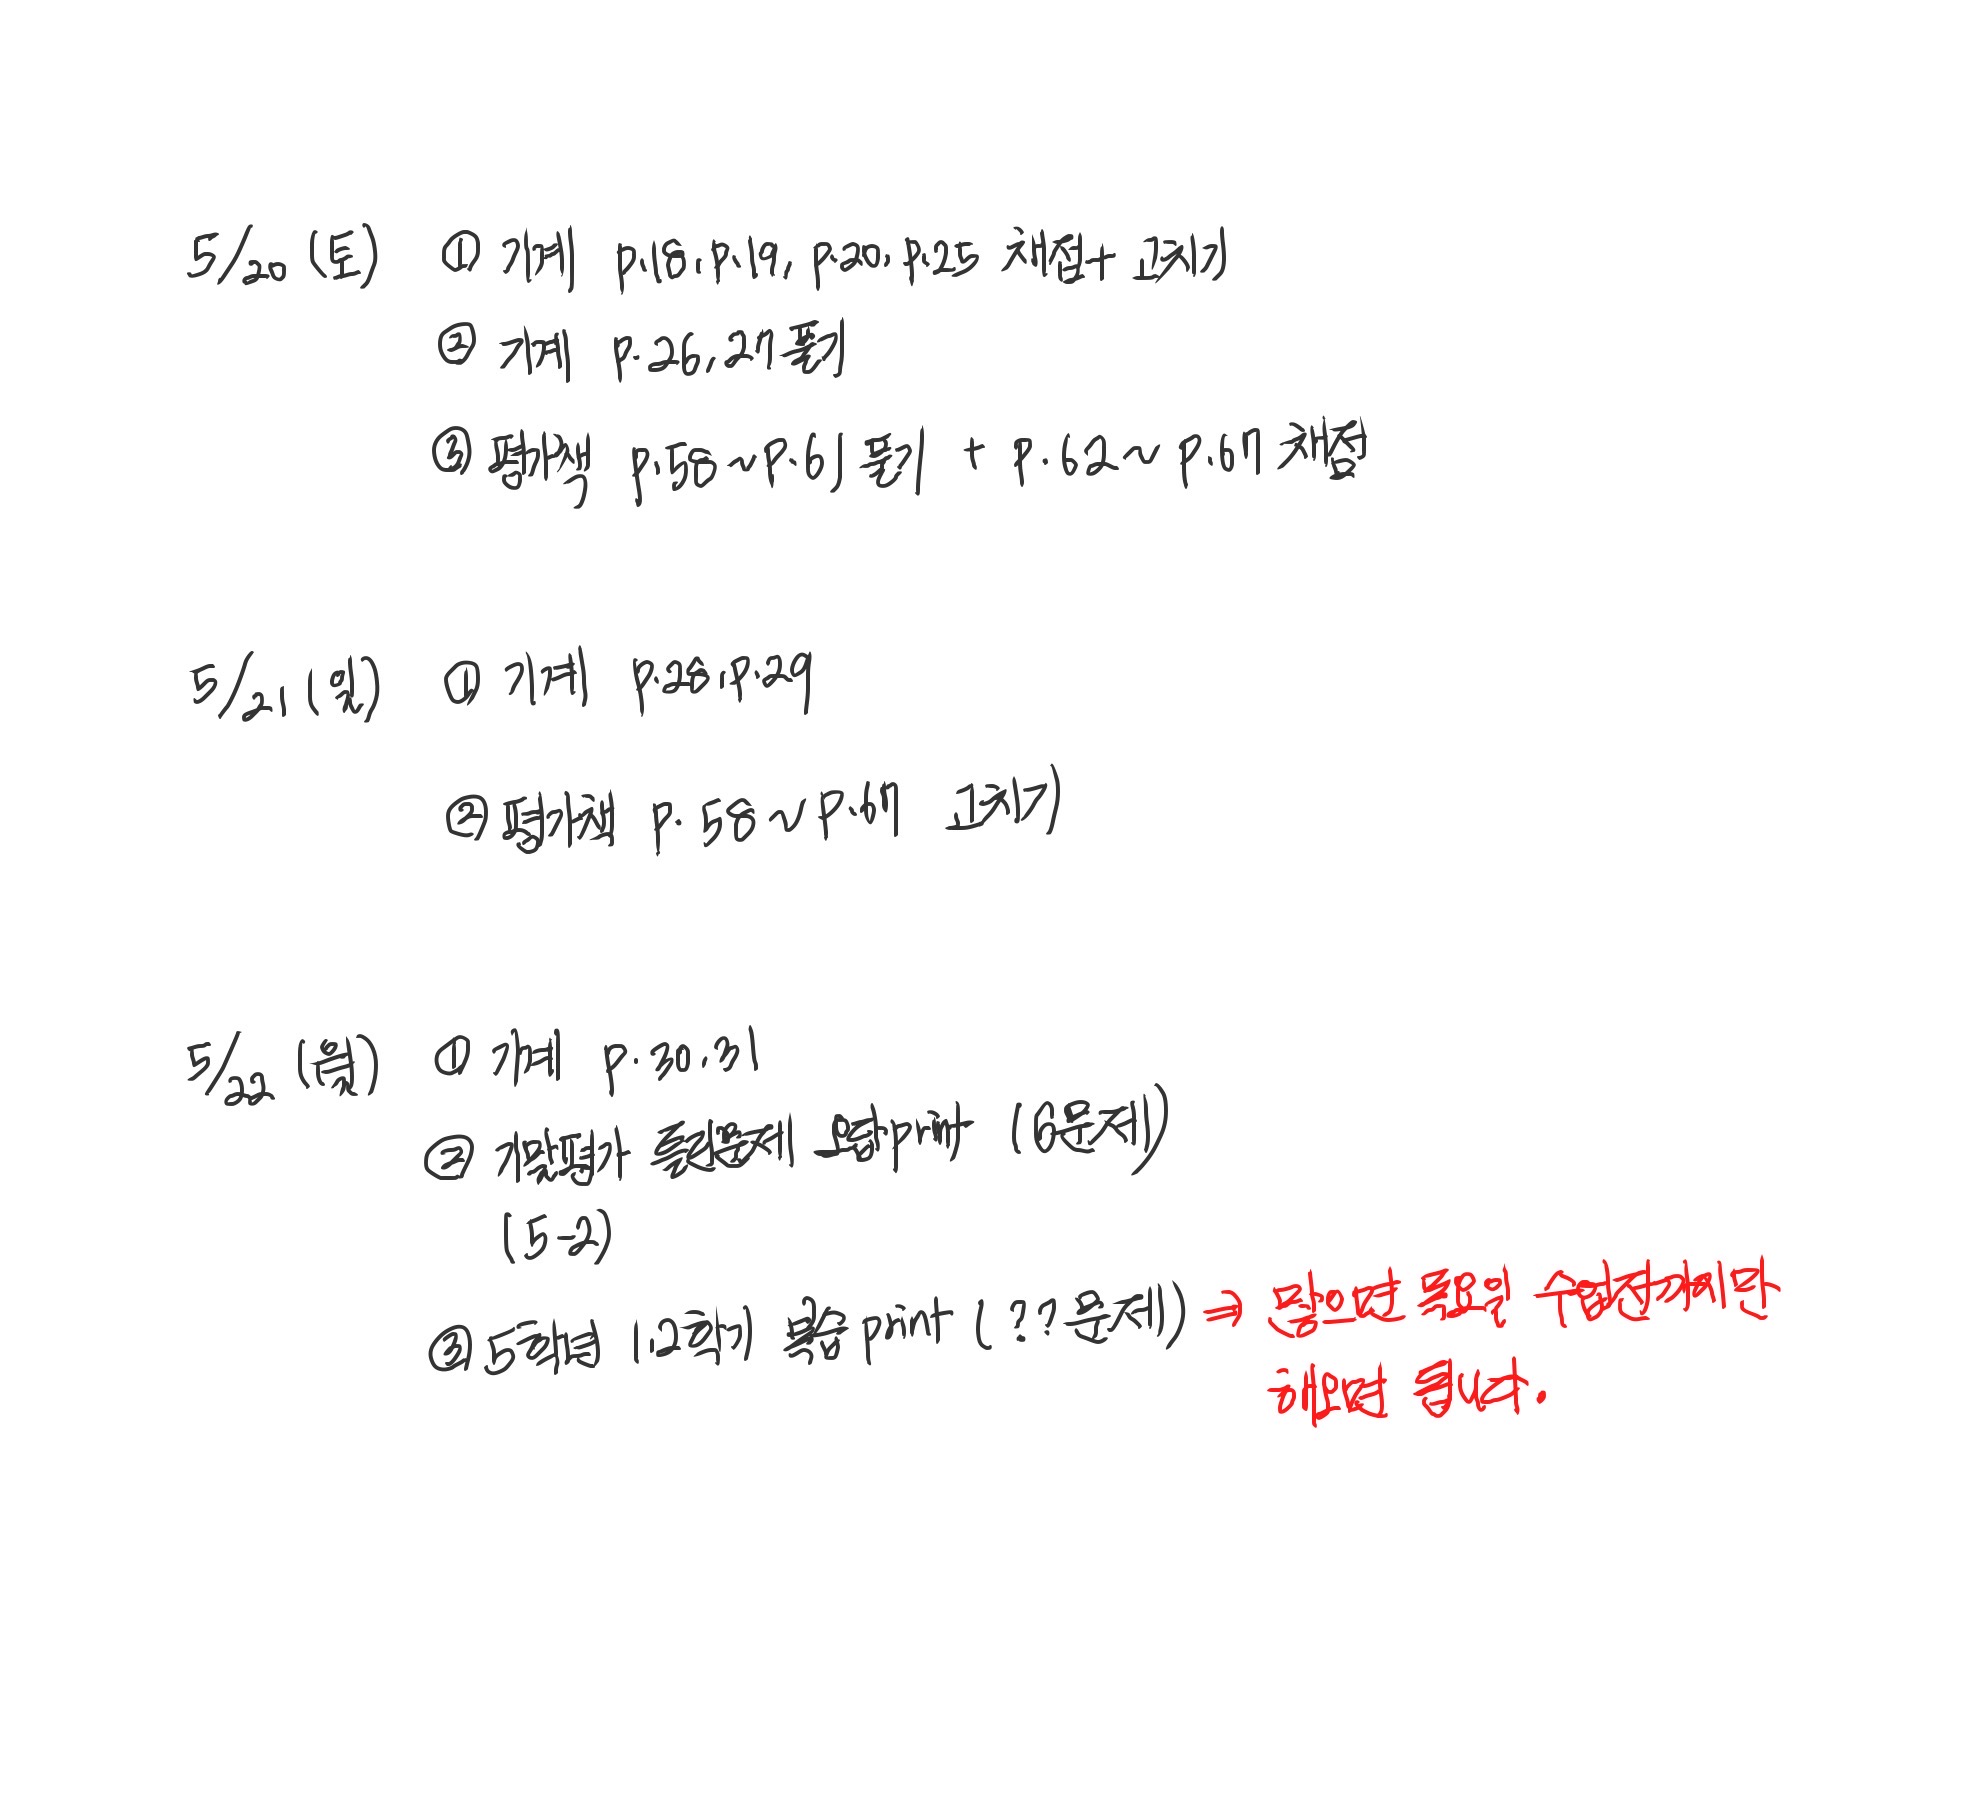 5/20 (토) ① 기계 p.18, p.19, p.20, p.25 채점 + 고치기
② 기계 p.26, 27 풀기
③ 평가책 p.58 ~ p.61 풀기 + p.62 ~ p.67 채점
5/21 (일) ① 기계 p.28, p.29
② 평가책 p.58 ~ p.67 고치기
5/22 (월) ① 기계 p.30, 31
② 기말평가 틀린문제 print (6문제)
(5-2)
③ 5학년 1,2학기 복습 print (??문제) ⇒ 많으면 목요일 수업전까지만
해오면 됩니다.